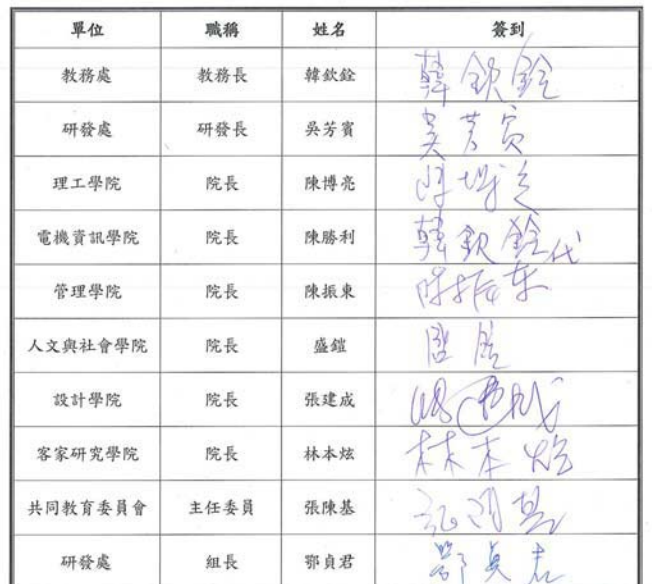 單位 職稱 姓名 簽到
教務處 教務長 韓欽銓 韓欽銓
研發處 研發長 吳芳賓 吳芳賓
理工學院 院長 陳博亮 陳博亮
電機資訊學院 院長 陳勝利 韓欽銓代
管理學院 院長 陳振東 陳振东
人文與社會學院 院長 盛鎧 盛鎧
設計學院 院長 張建成
客家研究學院 院長 林本炫 林本炫
共同教育委員會 主任委員 張陳基 張陳基
研發處 組長 鄂貞君 鄂貞君